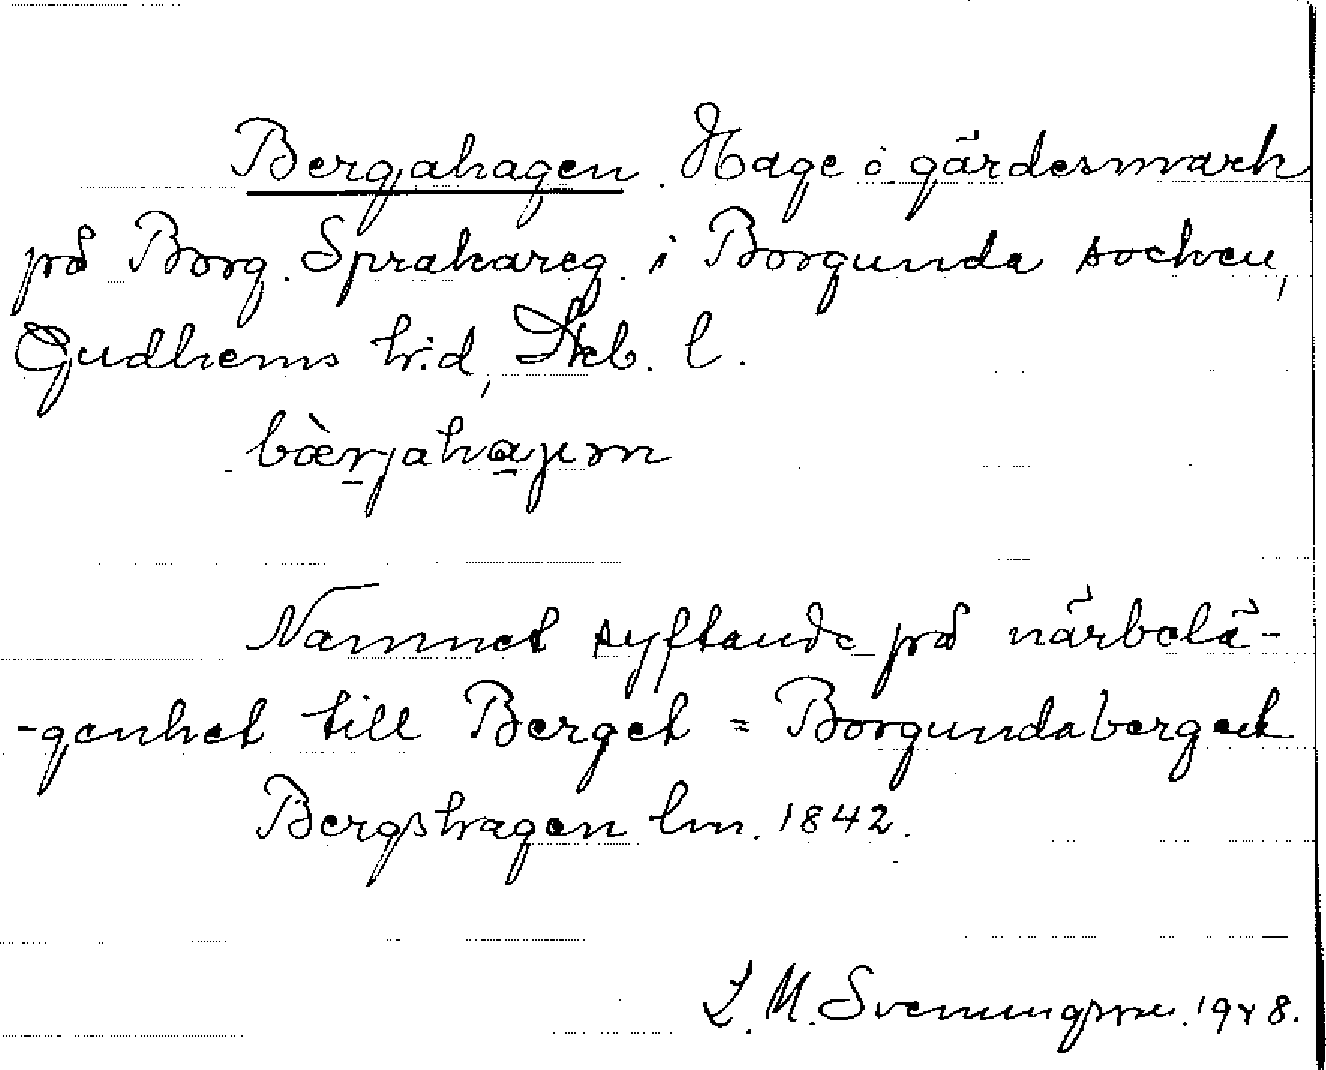 Bergahagen. Hage i gärdesmark
på Borg. Sprakareg. i Borgunda socken,
Gudhems h:d, Skb. l.
bæ̀rjahaɡən
Namnet syftande på närbelä-
-genhet till Berget = Borgundaberget
Bergshagen lm. 1842.
L. M. Svenungsson. 1948.